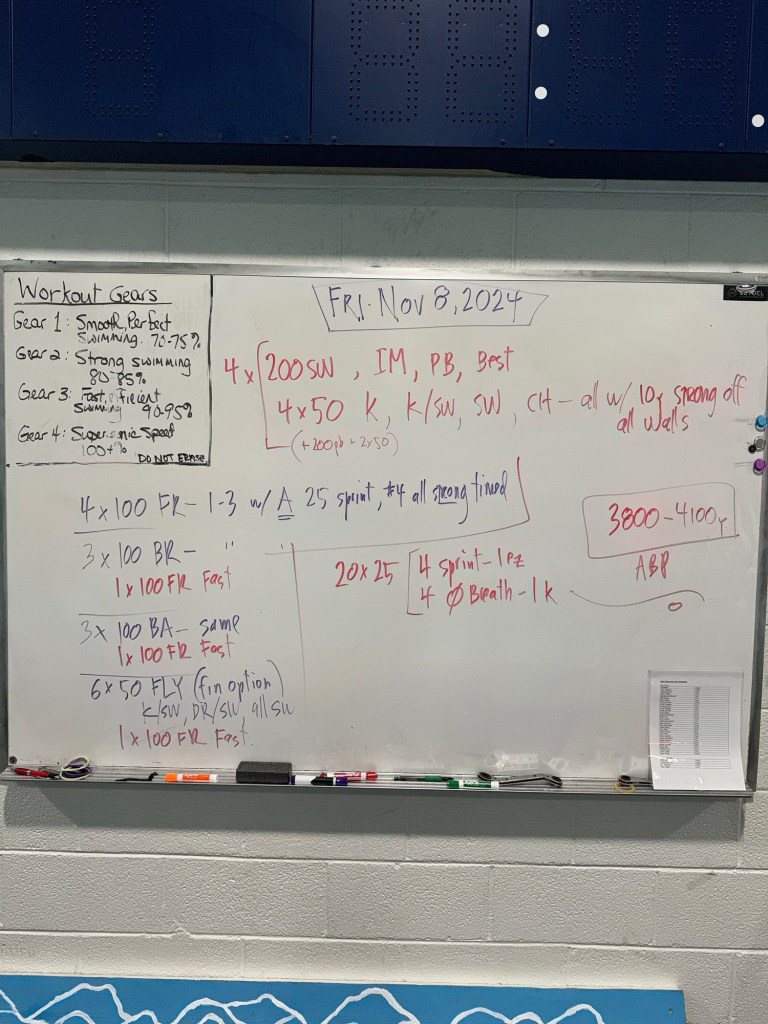 Workout Gears
Gear 1: Smooth, Perfect
Swimming. 70-75%
Gear 2: Strong swimming
80-85%
Gear 3: Fast, Efficient
Swimming 90-95%
Gear 4: Supersonic Speed
100+%
DO NOT ERASE
FRI. Nov 8, 2024
4x [200 SW, IM, PB, Best
4 x 50 K, K/SW, SW, CH - all w/ 10y strong off
all walls
(+200pb + 2x50)
4 x 100 FR - 1-3 w/ A 25 sprint, #4 all strong timed
3 x 100 BR - "
1 x 100 FR Fast
3 x 100 BA - same
1 x 100 FR Fast
6 x 50 FLY (fin option)
K/SW, DR/SW, all SW
1 x 100 FR Fast.
20 x 25 [4 sprint - 1 ez
4 Ø Breath - 1 k
3800-4100y
ABP